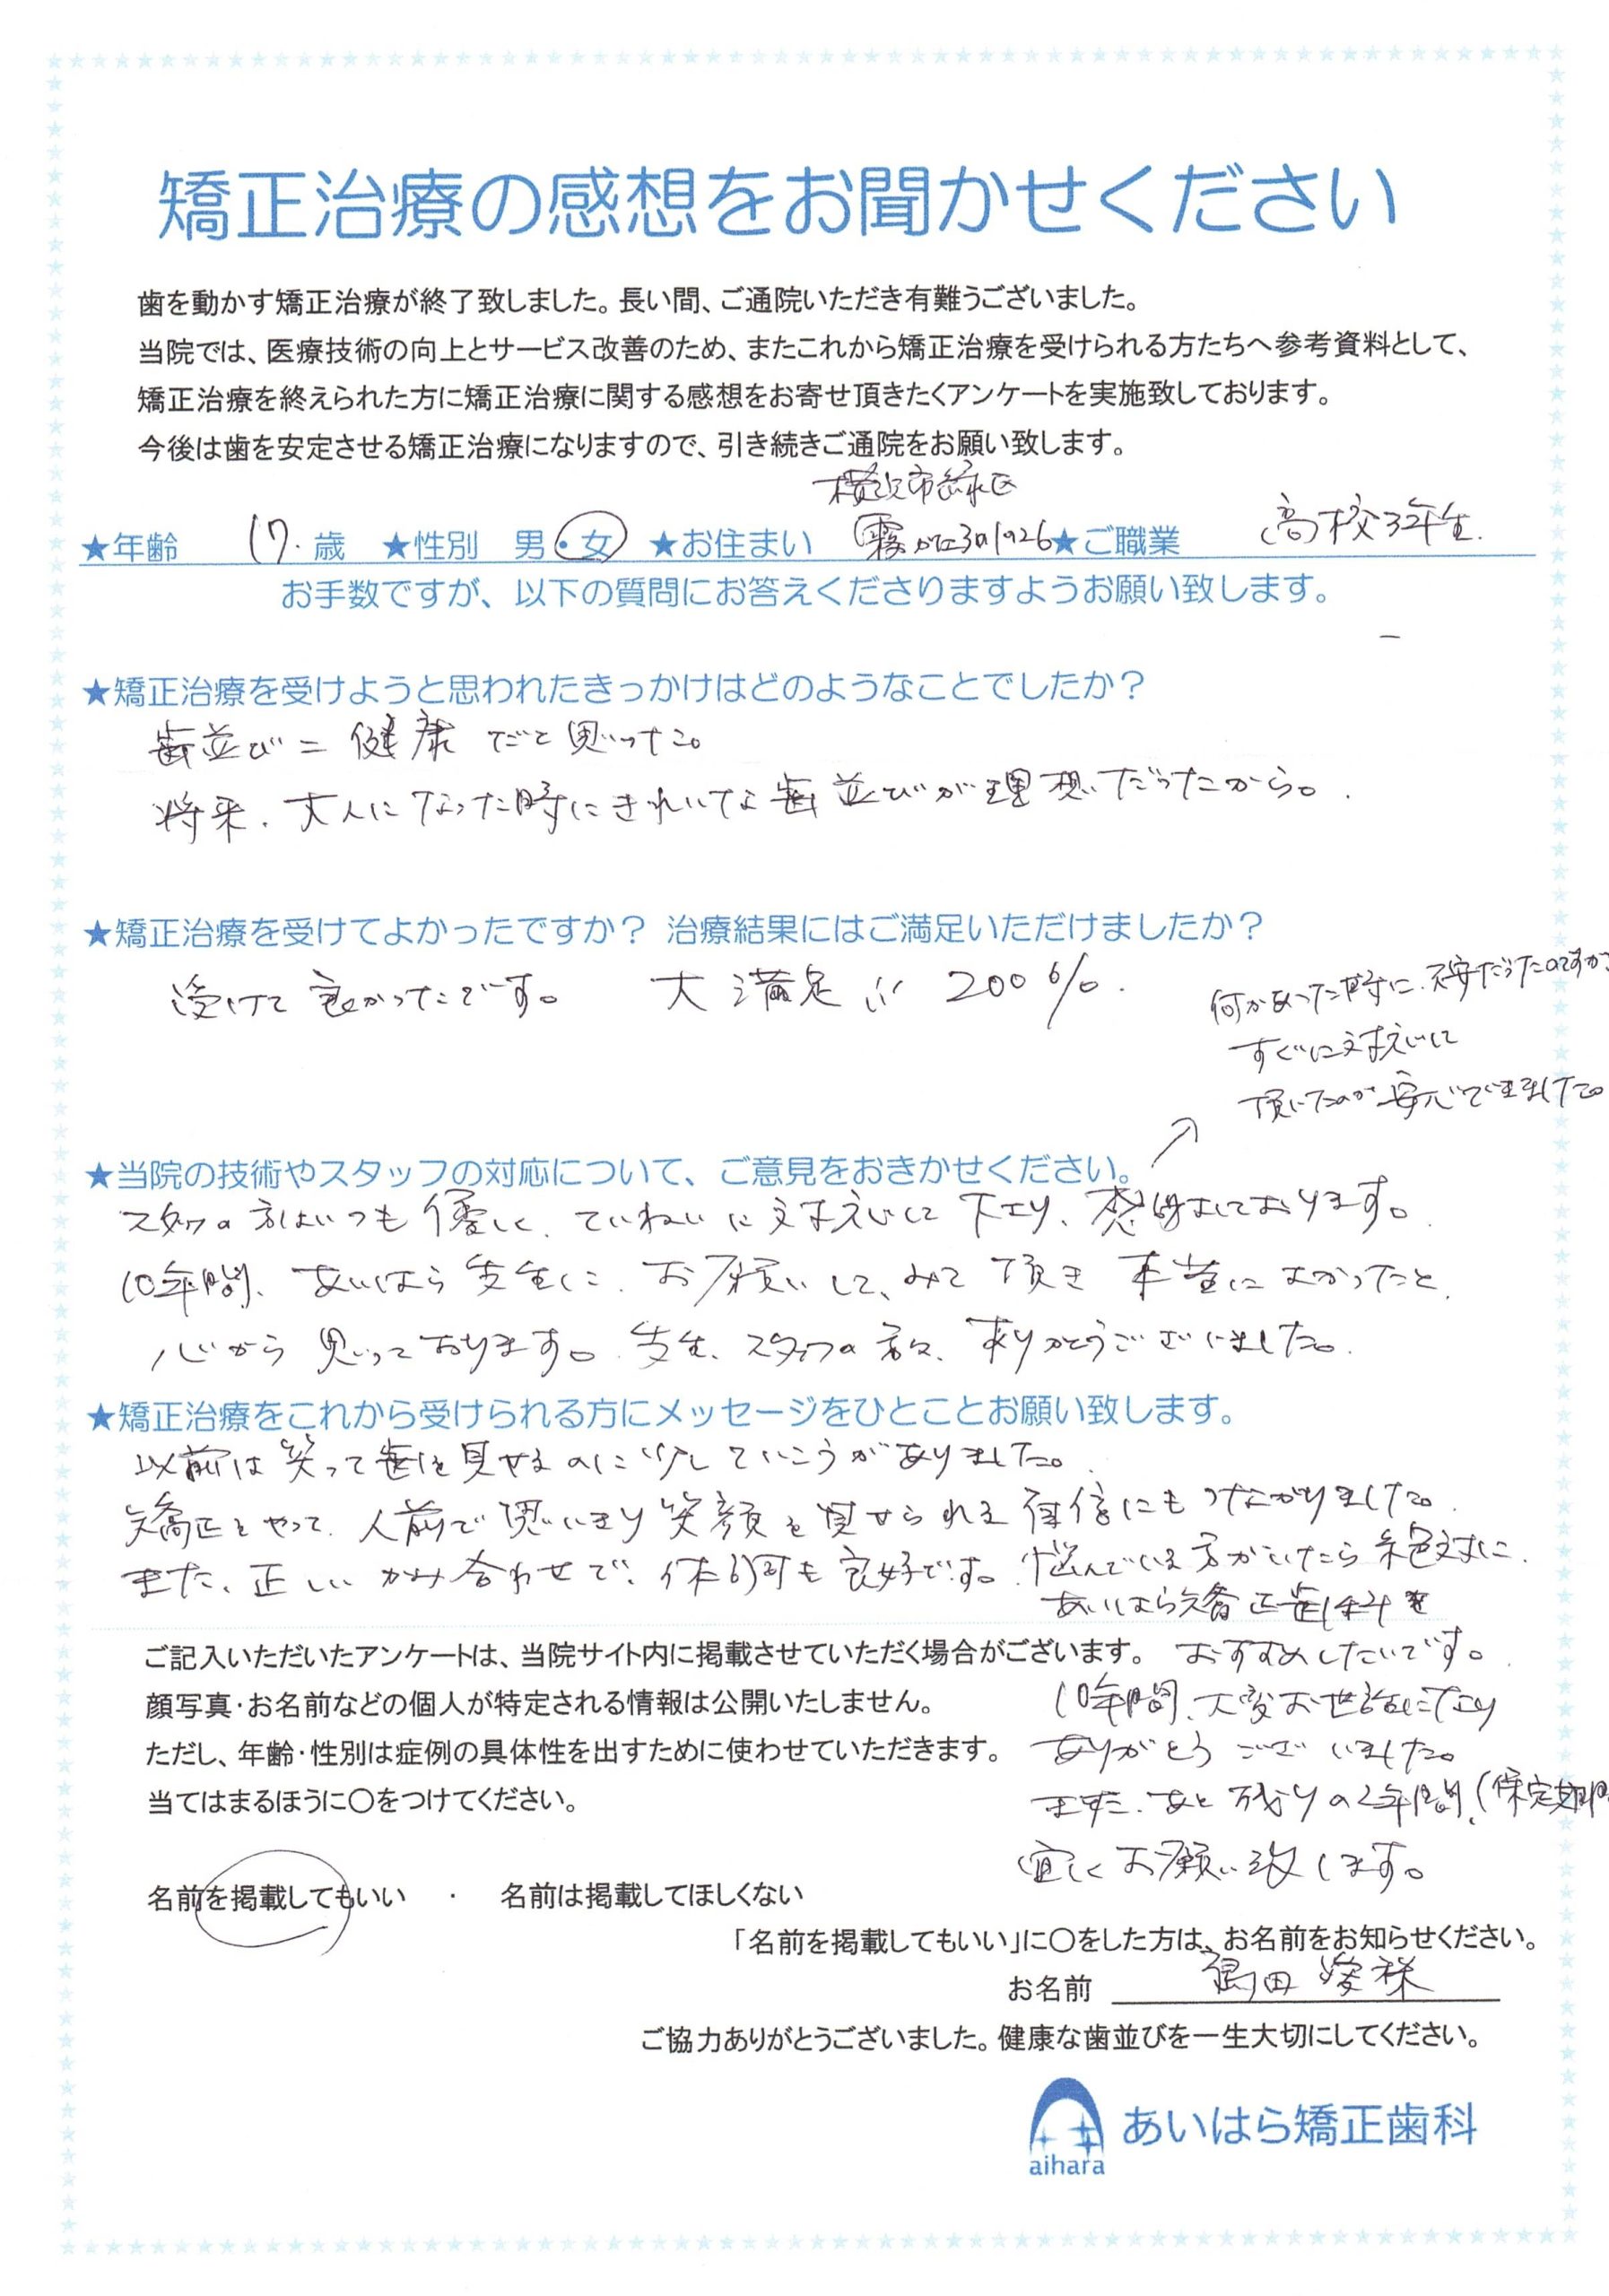 矯正治療の感想をお聞かせください
歯を動かす矯正治療が終了致しました。長い間、ご通院いただき有難うございました。
当院では、医療技術の向上とサービス改善のため、またこれから矯正治療を受けられる方たちへ参考資料として、
矯正治療を終えられた方に矯正治療に関する感想をお寄せ頂きたくアンケートを実施致しております。
今後は歯を安定させる矯正治療になりますので、引き続きご通院をお願い致します。
横浜市緑区
★年齢 17. 歳 ★性別 男・女 ★お住まい 霧が丘 ★ご職業 高校3年生.
お手数ですが、以下の質問にお答えくださりますようお願い致します。
★矯正治療を受けようと思われたきっかけはどのようなことでしたか？
歯並び＝健康だと思った。
将来、大人になった時にきれいな歯並びが理想だったから。
★矯正治療を受けてよかったですか？ 治療結果にはご満足いただけましたか？
受けて良かったです。 大満足!! 200%.
何かあった時に、不安だったのですが
すぐに対応して
頂いたのが安心できました。
★当院の技術やスタッフの対応について、ご意見をおきかせください。
スタッフの方はいつも優しく、ていねいに対応して下さり、感謝しております。
10年間、あいはら先生に、お願いして、みて頂き本当によかったと、
心から思っております。先生、スタッフの方々、ありがとうございました。
★矯正治療をこれから受けられる方にメッセージをひとことお願い致します。
以前は笑って歯を見せるのに少していこうがありました。
矯正をやって、人前で思いきり笑顔を見せられる自信にもつながりました。
また、正しいかみ合わせで、体調も良好です。悩んでいる方がいたら絶対に、
あいはら矯正歯科を
おすすめしたいです。
ご記入いただいたアンケートは、当院サイト内に掲載させていただく場合がございます。
顔写真・お名前などの個人が特定される情報は公開いたしません。
ただし、年齢・性別は症例の具体性を出すために使わせていただきます。
当てはまるほうに○をつけてください。
10年間、大変お世話になり
ありがとうございました。
まだ、あと残りの2年間、(保定期間
宜しくお願い致します。
名前を掲載してもいい ・ 名前は掲載してほしくない
「名前を掲載してもいい」に○をした方は、お名前をお知らせください。
お名前 田
ご協力ありがとうございました。健康な歯並びを一生大切にしてください。
aihara あいはら矯正歯科